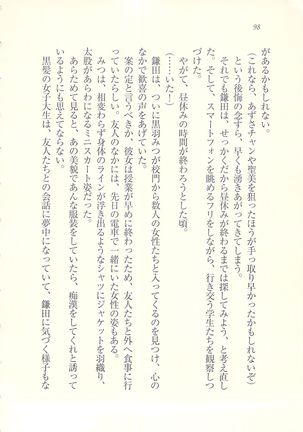 98
があるかもしれない。
（これなら、あずさチャンや聖美を狙ったほうが手っ取り早かったかもしれないぞ）
という後悔の念すら、早くも湧きあがってきてしまう。
それでも鎌田は、せっかくだから昼休みが終わるまでは探してみよう、と考え直した。そして、スマートフォンを眺めるフリをしながら、行き交う学生たちを観察しつづけた。
やがて、昼休みの時間が終わろうとした頃。
（……いた！）
鎌田は、ついに黒羽みつが校門から数人の女性たちと入ってくるのを見つけ、心のなかで歓喜の声をあげていた。
案の定と言うべきか、彼女は授業が早めに終わったため、友人たちと外へ食事に行っていたらしい。友人のなかには、先日の電車で一緒にいた女性の姿もある。
みつは、相変わらず身体のラインが浮き出るようなシャツにジャケットを羽織り、太股があらわになるミニスカート姿だった。
あらためて見ると、あの美貌であんな服装をしていたら、痴漢をしてくれと誘っているようにも思えてならない。
黒髪の女子大生は、友人たちとの会話に夢中になっていて、鎌田に気づく様子もな